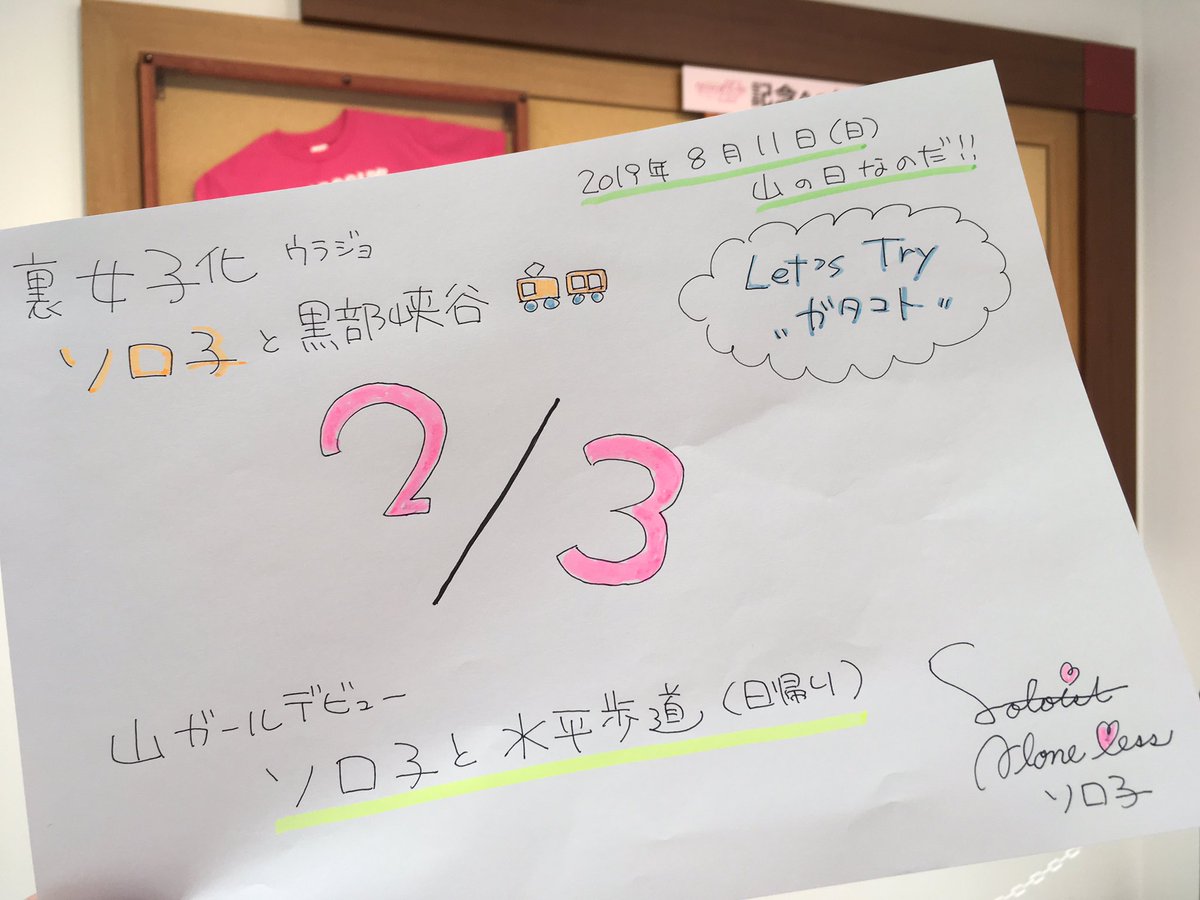 記念
2019年8月11日(日)
山の日なのだ!!
裏女子化 ウラジョ
ソロ子と黒部峡谷
Let's Try
"ガタコト"
2/3
山ガールデビュー
ソロ子と水平歩道(日帰り)
Soloist
Alone less
ソロ子